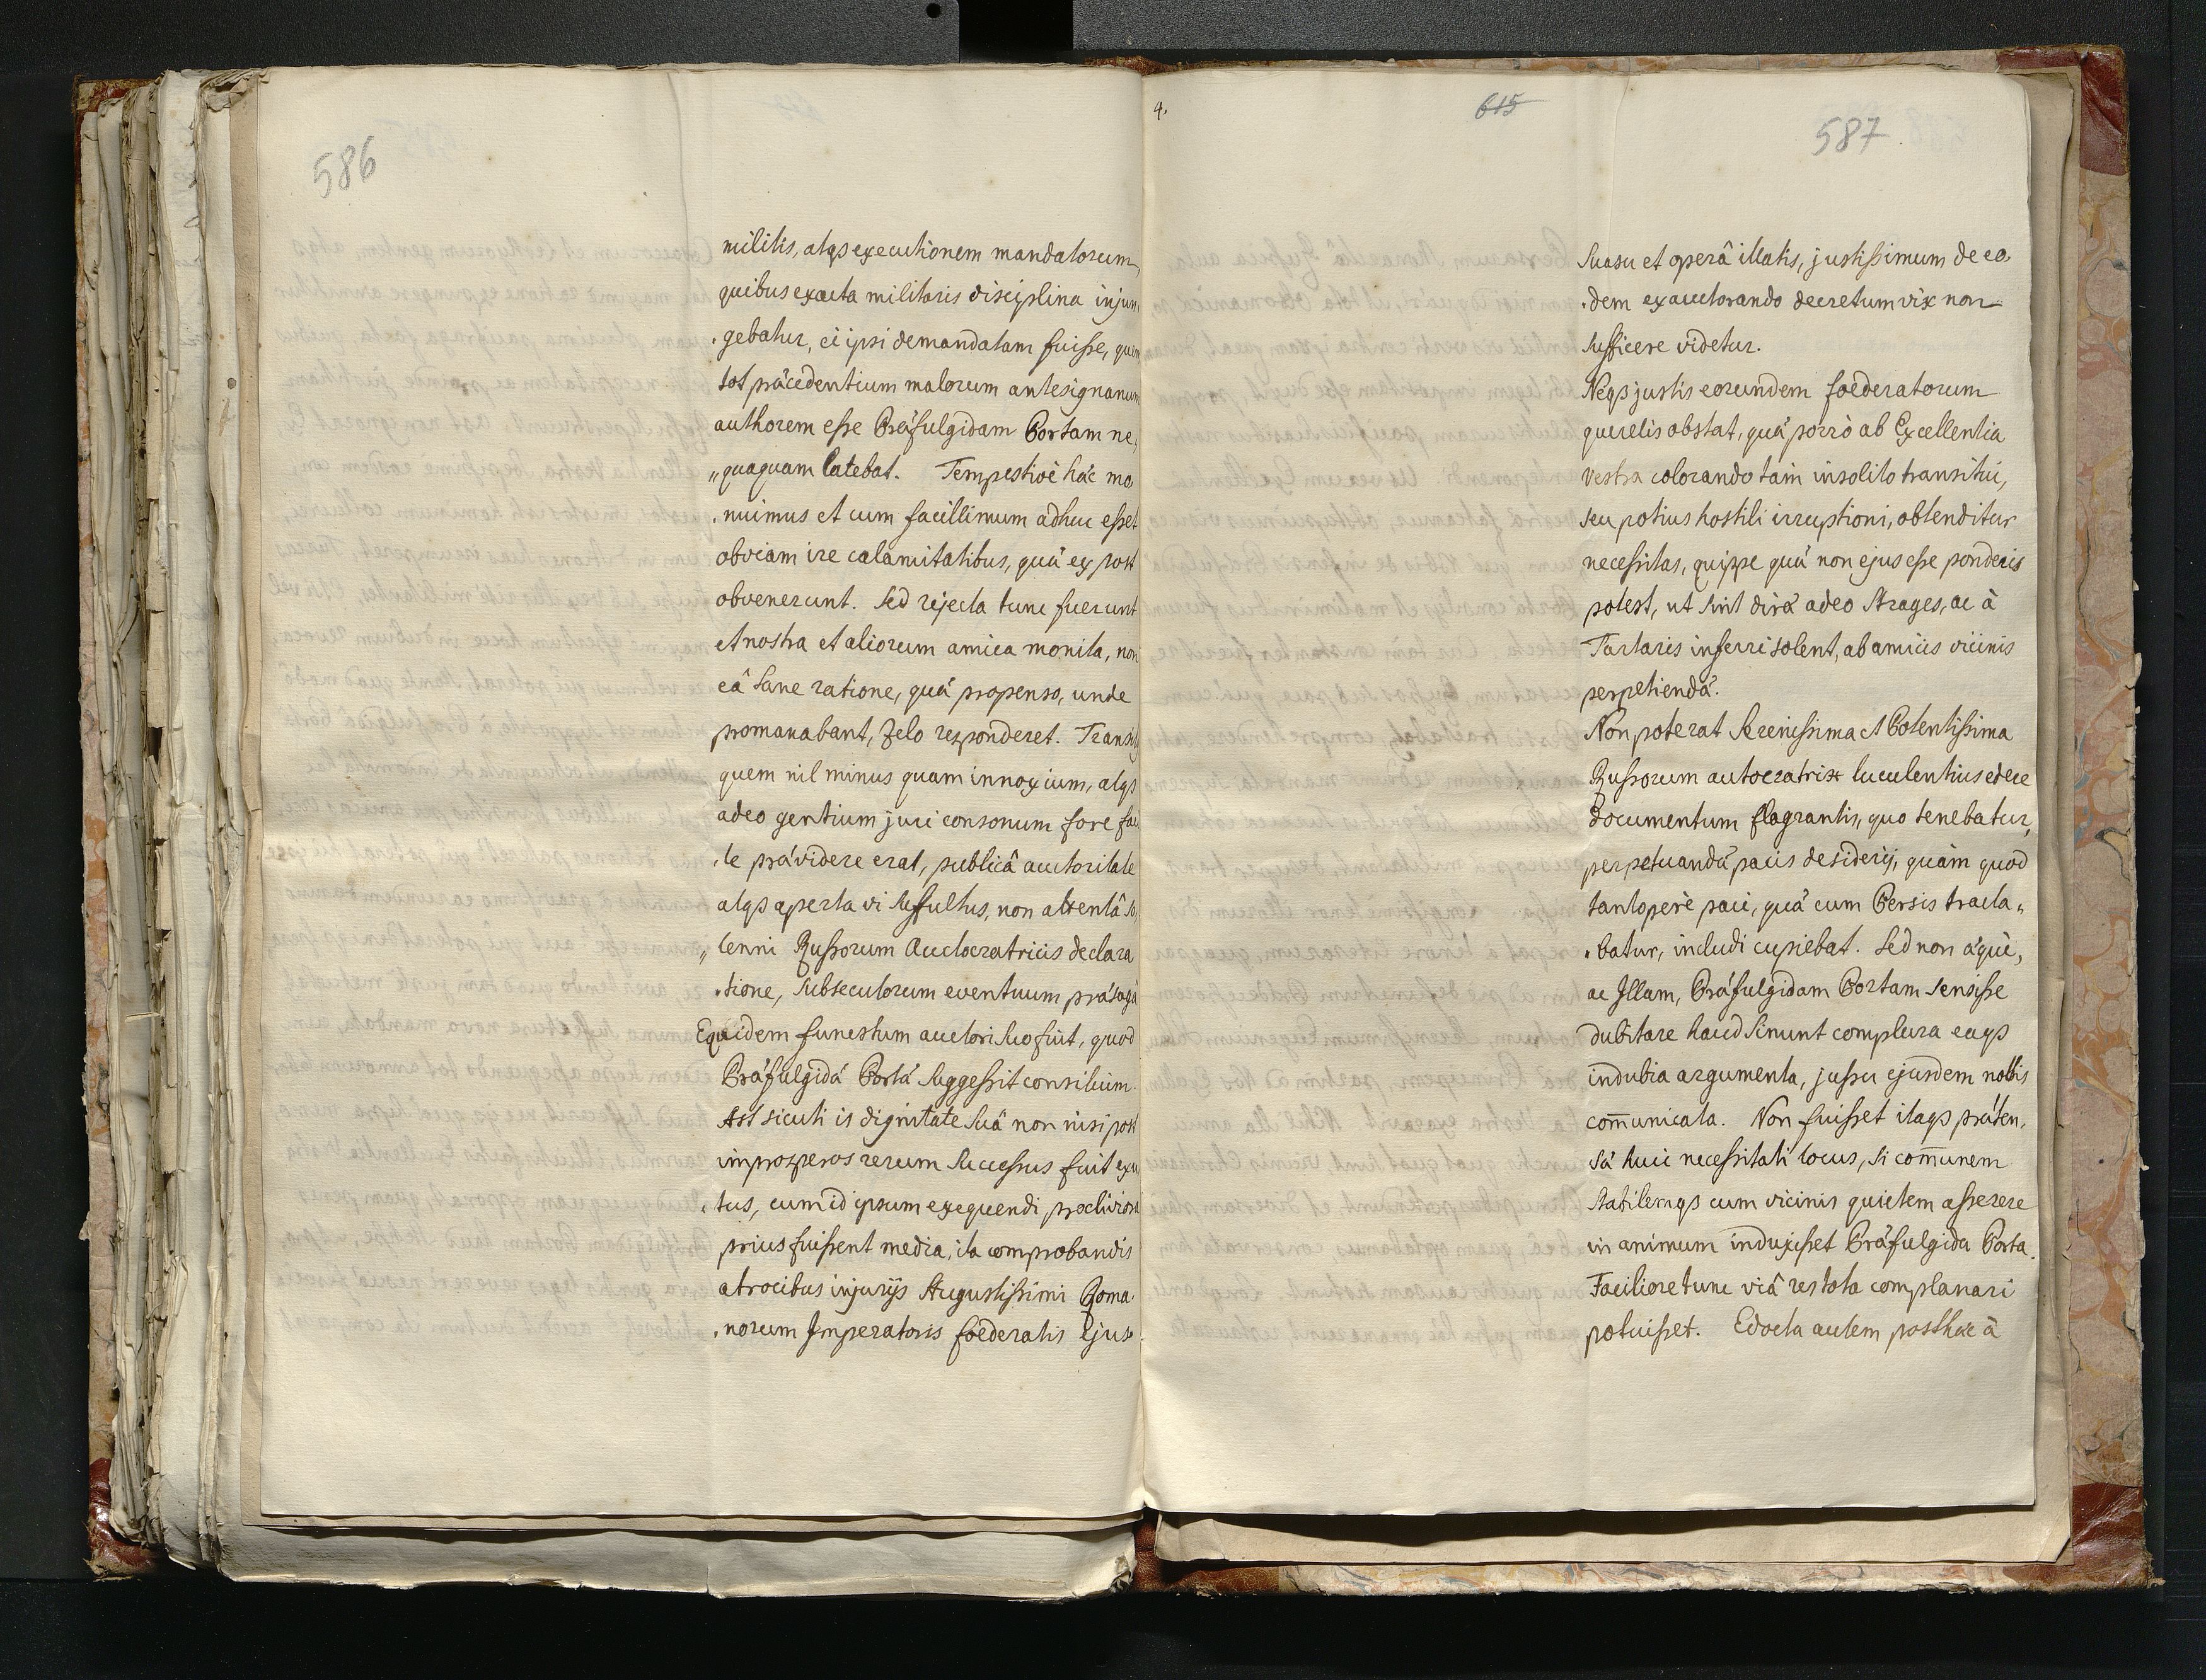 586
militis, atqs executionem mandatorum,
quibus exacta militaris disciplina injun,
. gebatur, ei ipsi demandatam fuisse, quem
tot præcedentium malorum antesignanum
authorem esse Præfulgidam Portam ne,
„quaquam latebat. Tempestivè hæc mo,
. nuimus et cum facillimum adhuc esset
obviam ire calamitatibus, quæ ex post
obvenerunt. Sed rejecta tunc fuerunt
et nostra et aliorum amica monita, non
eâ sane ratione, quæ propenso, unde
promanabant, zelo responderet. Transitq
quem nil minus quam innoxium, atqs
adeo gentium juri consonum fore faci
. le prævidere erat, publicâ auctoritate
atqs aperta vi suffultus, non attentâ so,
„ lenni Russorum Auctocratricis declara
. tione, subsecutorum eventuum præsagâ
Equidem funestum auctori suo fuit, quod
Præfulgidæ Portæ suggessit consilium.
Ast siculi is dignitate suâ non nisi post
improsperos rerum successus fuit exu
. tus, cum id ipsum exequendi procliviora
prius fuissent media, ita comprobandis
atrocibus injurijs Augustissimi Roma.
. norum Imperatoris foederatis ejus
4.
615
587
Suasu et operâ illatis, justissimum de eo,
. dem exauctorando decretum vix non
sufficere videtur.
Neqs justis eorundem foederatorum
querelis obstat, quæ porrò ab Excellentia
vestra colorando tam insolito transitui,
seu potius hostili irruptioni, obtenditur
necessitas, quippe quæ non ejus esse ponderis
potest, ut sint diræ adeo strages, ac à
Tartaris inferri solent, ab amicis vicinis
perpetiendæ.
Non poterat Serenissima et Potentissima
Russorum autocratrix luculentius edere
documentum flagrantis, quo tenebatur,
perpetuandæ pacis desiderij, quàm quod
tantoperè paci, quæ cum Persis tracta„
. batur, includi cupiebat. Sed non æquè,
ac Illam, Præfulgidam Portam sensisse
dubitare haud sinunt complura eaqs
indubia argumenta, jussu ejusdem nobis
com̄unicata. Non fuisset itaqs præten,
sæ huic necessitati locus, si com̄unem
stabilemqs cum vicinis quietem asserere
in animum induxisset Præfulgida Porta.
Faciliore tunc viâ res tota complanari
potuisset. Edocta autem posthæc à